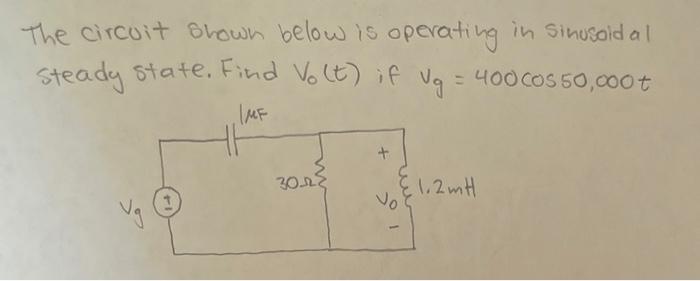 The circuit shown below is operating in sinusoidal
steady state. Find Vo(t) if Vg = 400cos50,000t
1MF
+
30Ω
1.2mH
Vo
Vg
+
-
-